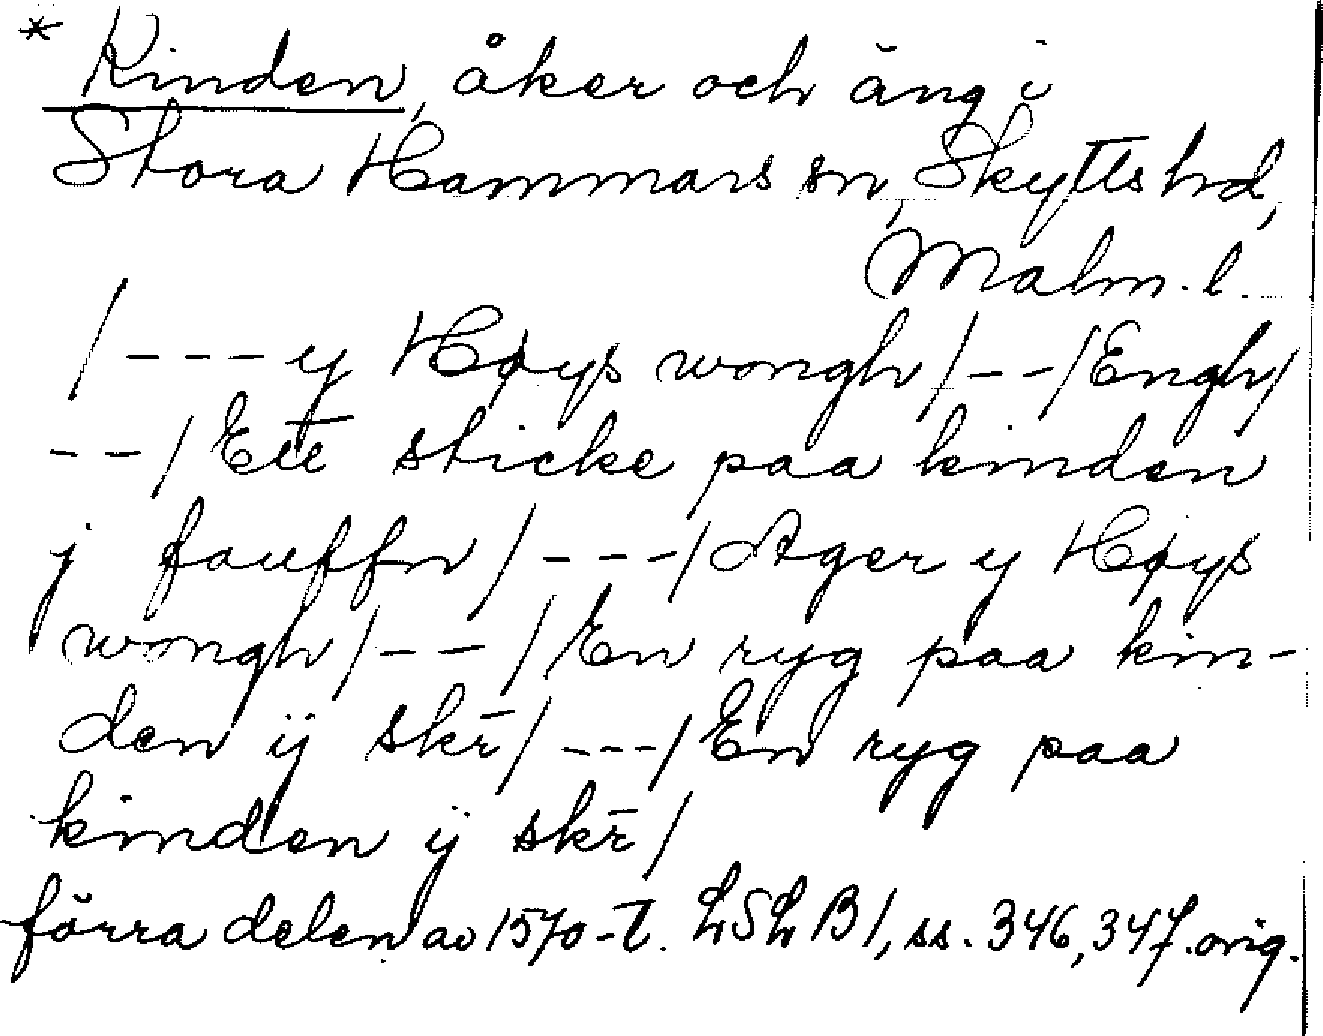 * Kinden, åker och äng i
Stora Hammars sn, Skytts hd,
Malm. l.
/---y Høys wongh/--/Engh/
--/Ett sticke paa kinden
j fauffn/---/Ager y Høys
wongh/--/En ryg paa kin-
den ij skr̄/---/En ryg paa
kinden ij skr̄/
förra delen av 1570-t. LSL B1, ss. 346, 347. orig.